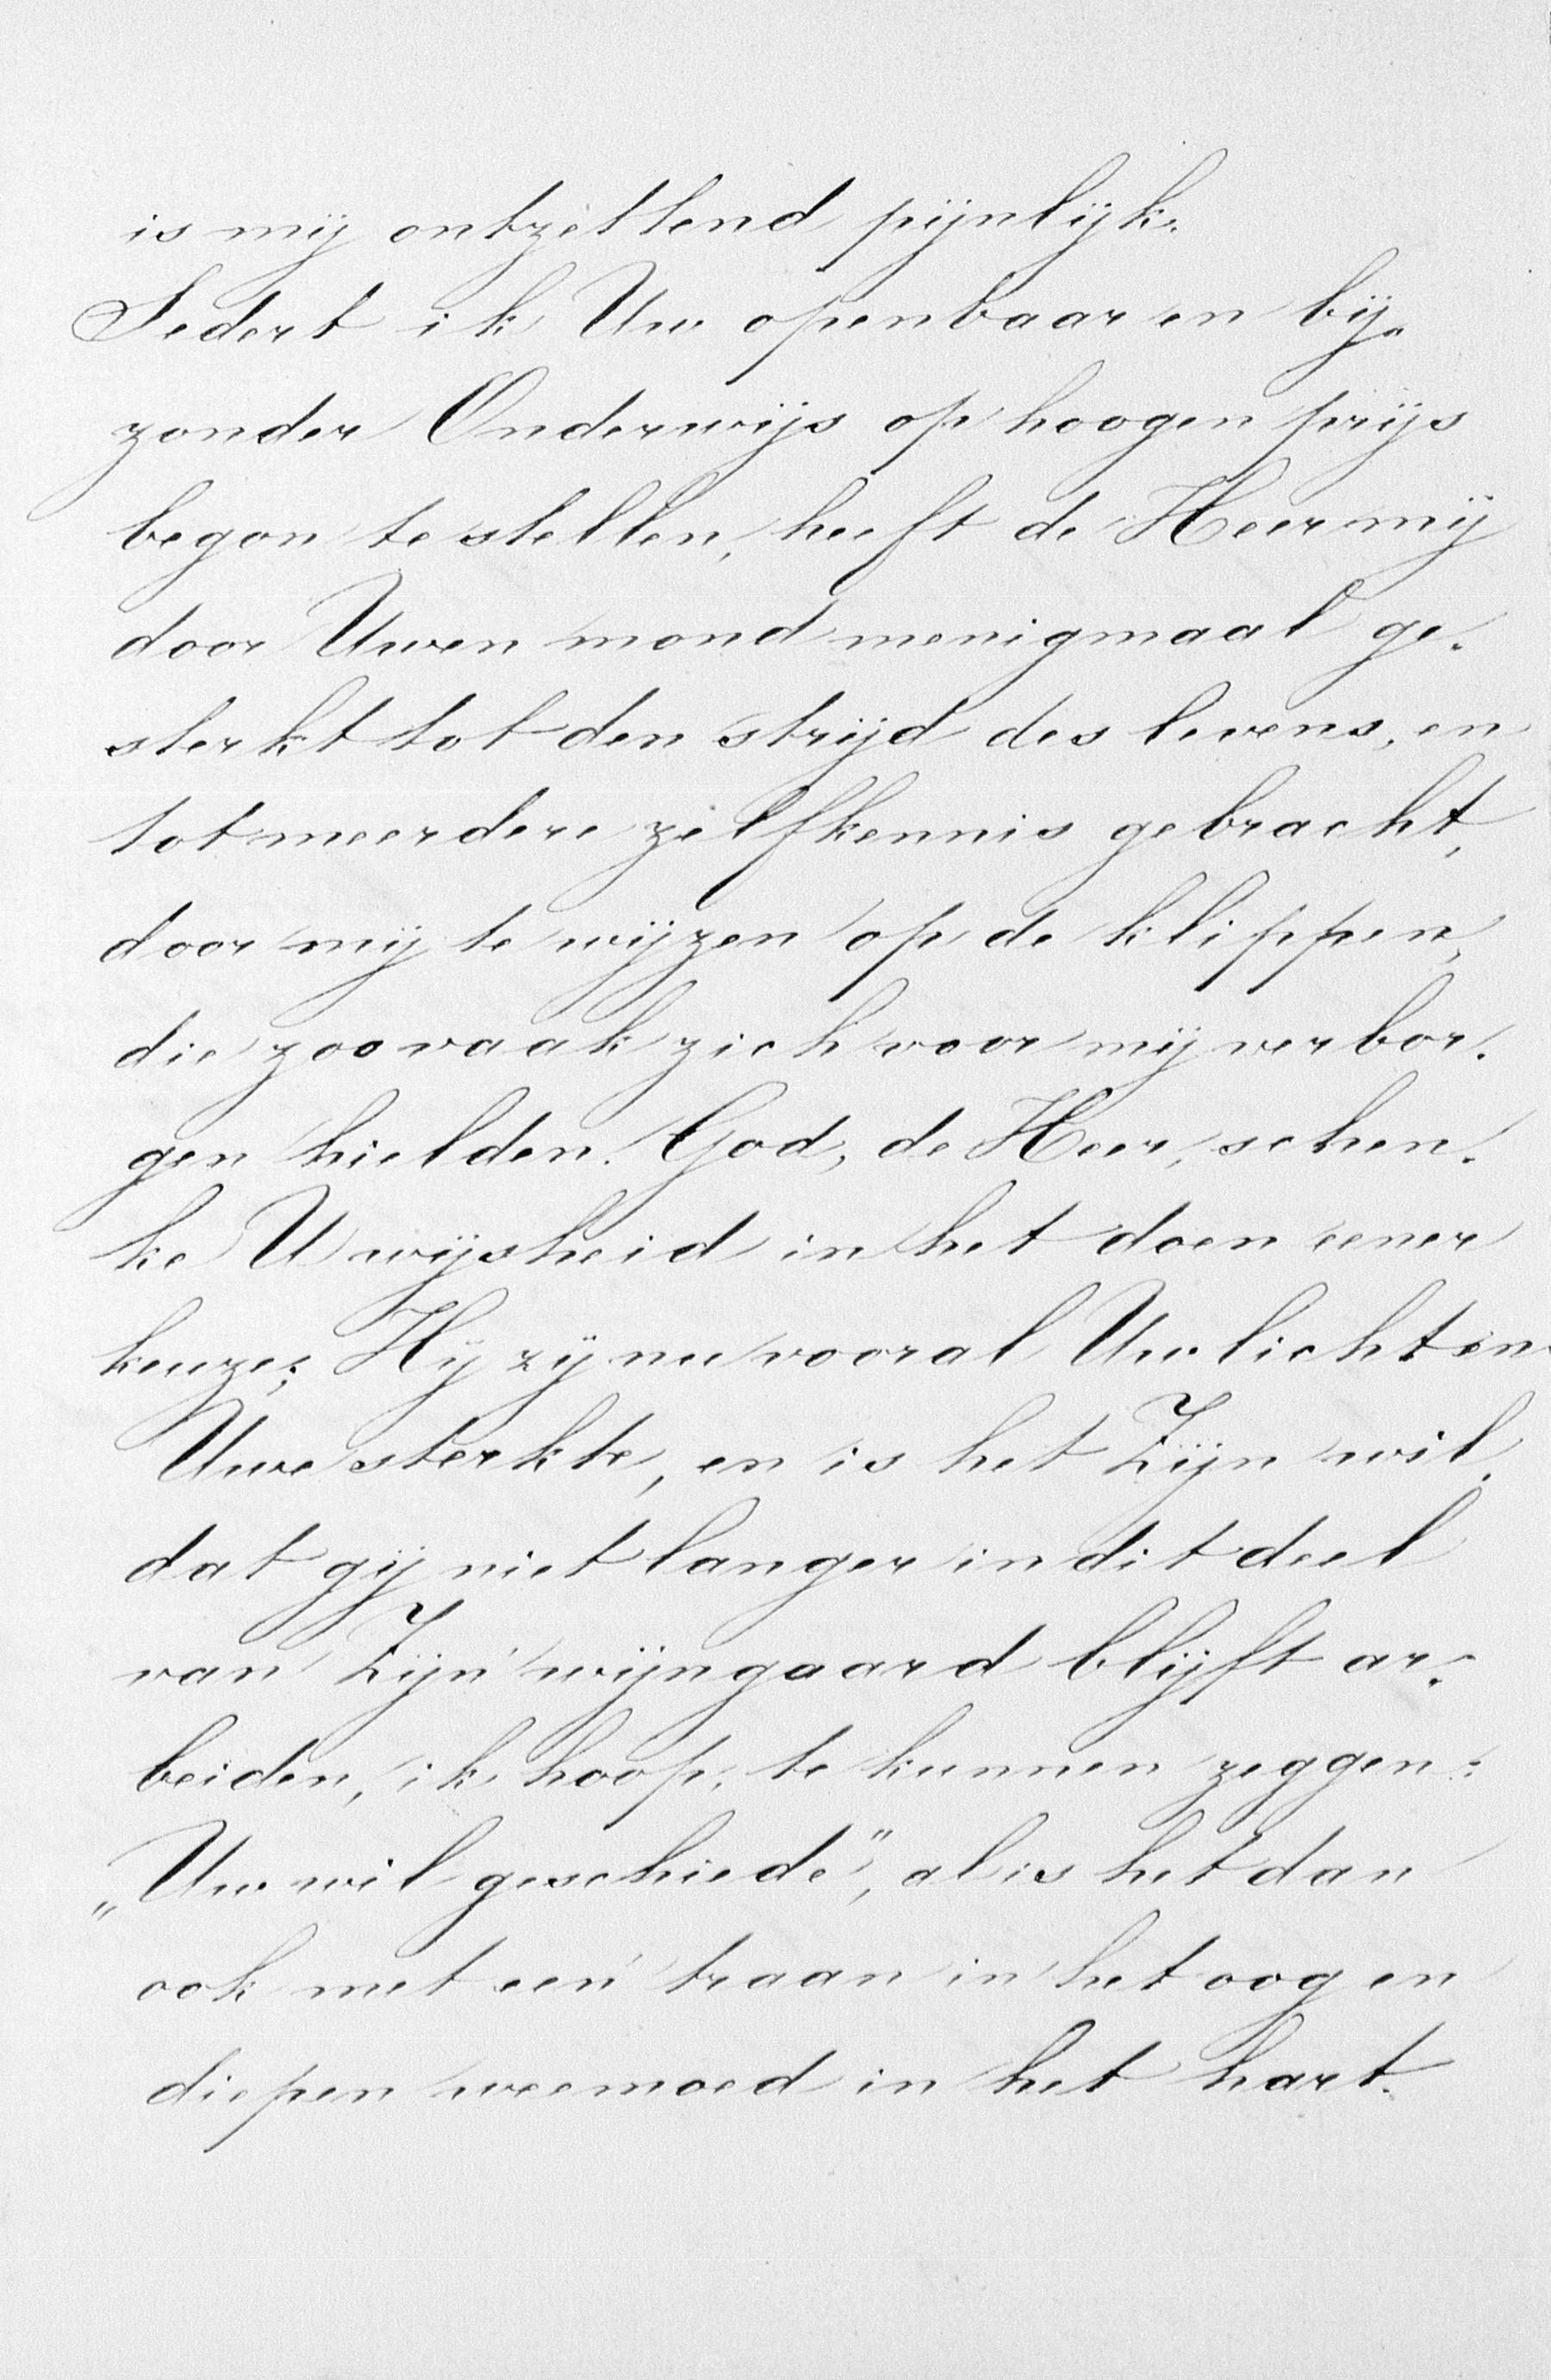 is mij ontzettend pijnlijk.
Sedert ik Uw openbaar en bij-
zonder Onderwijs op hoogen prijs
begon te stellen, heeft de Heer mij
door Uwen mond menigmaal ge-
sterkt tot den strijd des levens, en
tot meerdere zelfkennis gebracht,
door mij te wijzen op de klippen,
die zoo vaak zich voor mij verbor-
gen hielden. God, de Heer, schen-
ke U wijsheid in het doen eener
keuze; Hij zij nu vooral Uw licht en
Uwe sterkte, en is het Zijn wil,
dat gij niet langer in dit deel
van Zijn' wijngaard blijft ar-
beiden, ik hoop, te kunnen zeggen:
„Uw wil geschiede”, al is het dan
ook met een' traan in het oog en
diepen weemoed in het hart.